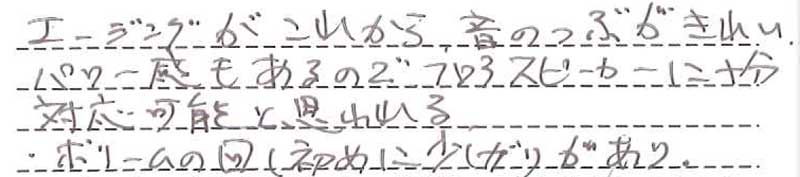 エージングがこれから、音のつぶがきれい.
パワー感もあるのでフロアスピーカーに十分
対応可能と思われる
・ボリームの回し初めに少しガリがあり。